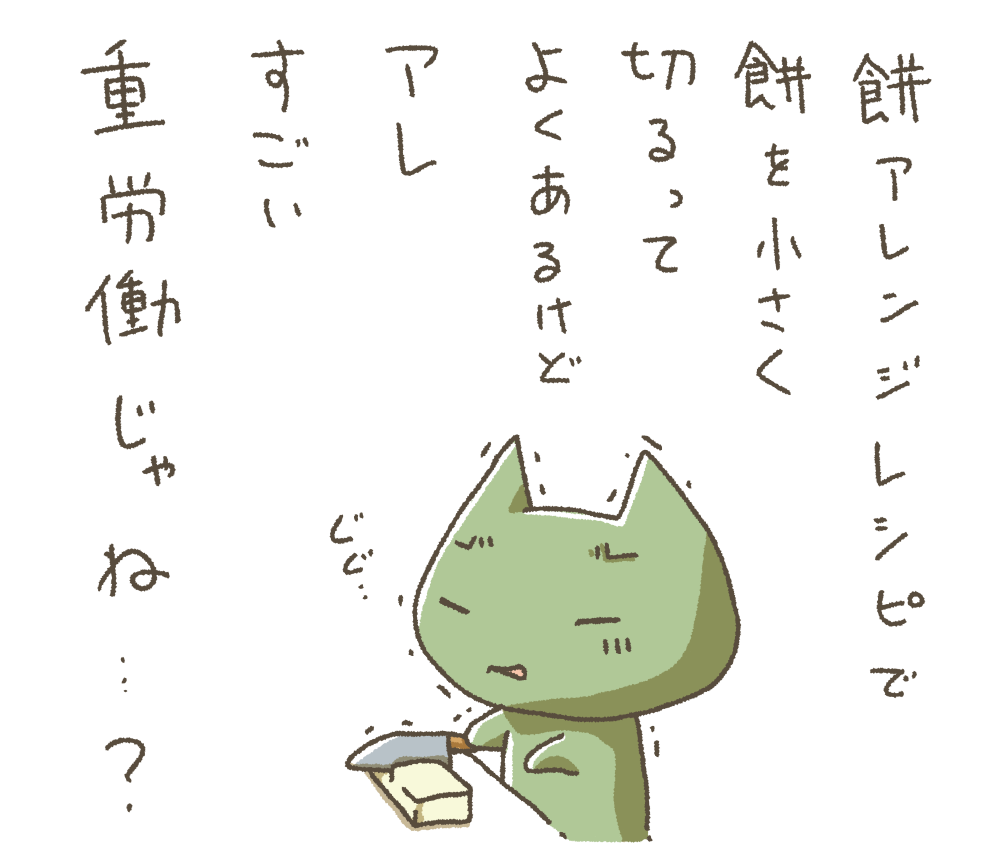 餅アレンジレシピで
餅を小さく
切るって
よくあるけど
アレ
すごい
重労働じゃね…?
ぐぐ…